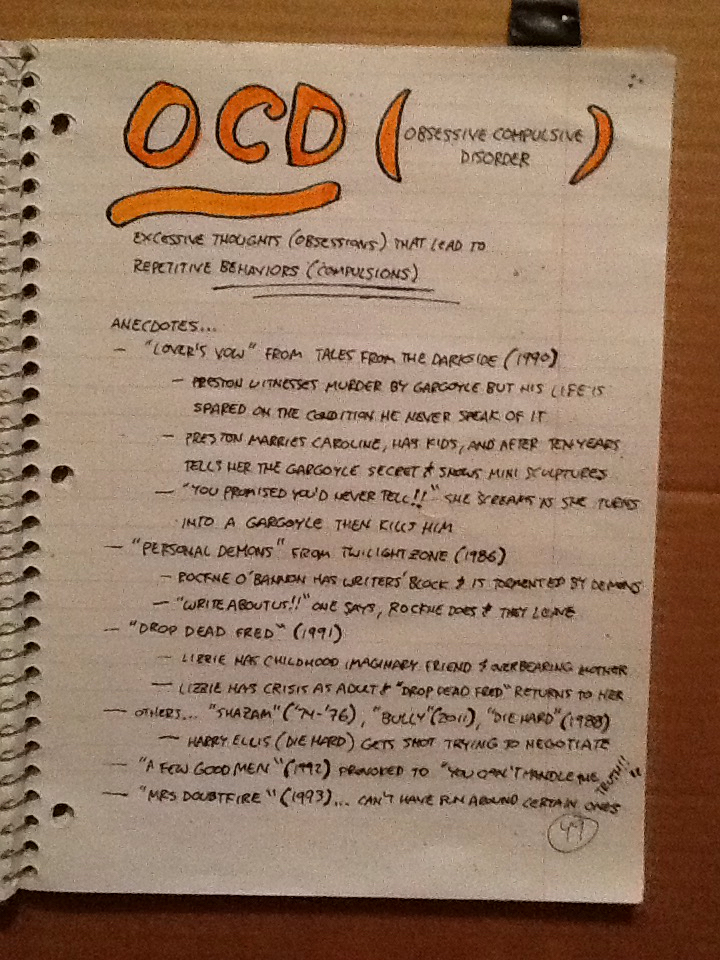 OCD (OBSESSIVE COMPULSIVE
DISORDER)
EXCESSIVE THOUGHTS (OBSESSIONS) THAT LEAD TO
REPETITIVE BEHAVIORS (COMPULSIONS)
ANECDOTES...
— "LOVER'S VOW" FROM TALES FROM THE DARKSIDE (1990)
— PRESTON WITNESSES MURDER BY GARGOYLE BUT HIS LIFE IS
SPARED ON THE CONDITION HE NEVER SPEAK OF IT
— PRESTON MARRIES CAROLINE, HAS KIDS, AND AFTER TEN YEARS
TELLS HER THE GARGOYLE SECRET & SHOWS MINI SCULPTURES
— "YOU PROMISED YOU'D NEVER TELL!!" SHE SCREAMS AS SHE TURNS
INTO A GARGOYLE THEN KILLS HIM
— "PERSONAL DEMONS" FROM TWILIGHT ZONE (1986)
— ROCKNE O'BANNON HAS WRITERS' BLOCK & IS TORMENTED BY DEMONS
— "WRITE ABOUT US!!" ONE SAYS, ROCKNE DOES & THEY LEAVE
— "DROP DEAD FRED" (1991)
— LIZZIE HAS CHILDHOOD IMAGINARY FRIEND & OVERBEARING MOTHER
— LIZZIE HAS CRISIS AS ADULT & "DROP DEAD FRED" RETURNS TO HER
— OTHERS... "SHAZAM" ('74-'76), "BULLY" (2011), "DIE HARD" (1988)
— HARRY ELLIS (DIE HARD) GETS SHOT TRYING TO NEGOTIATE
— "A FEW GOOD MEN" (1992) PROVOKED TO "YOU CAN'T HANDLE THE TRUTH!!"
— "MRS DOUBTFIRE" (1993)... CAN'T HAVE FUN AROUND CERTAIN ONES
49